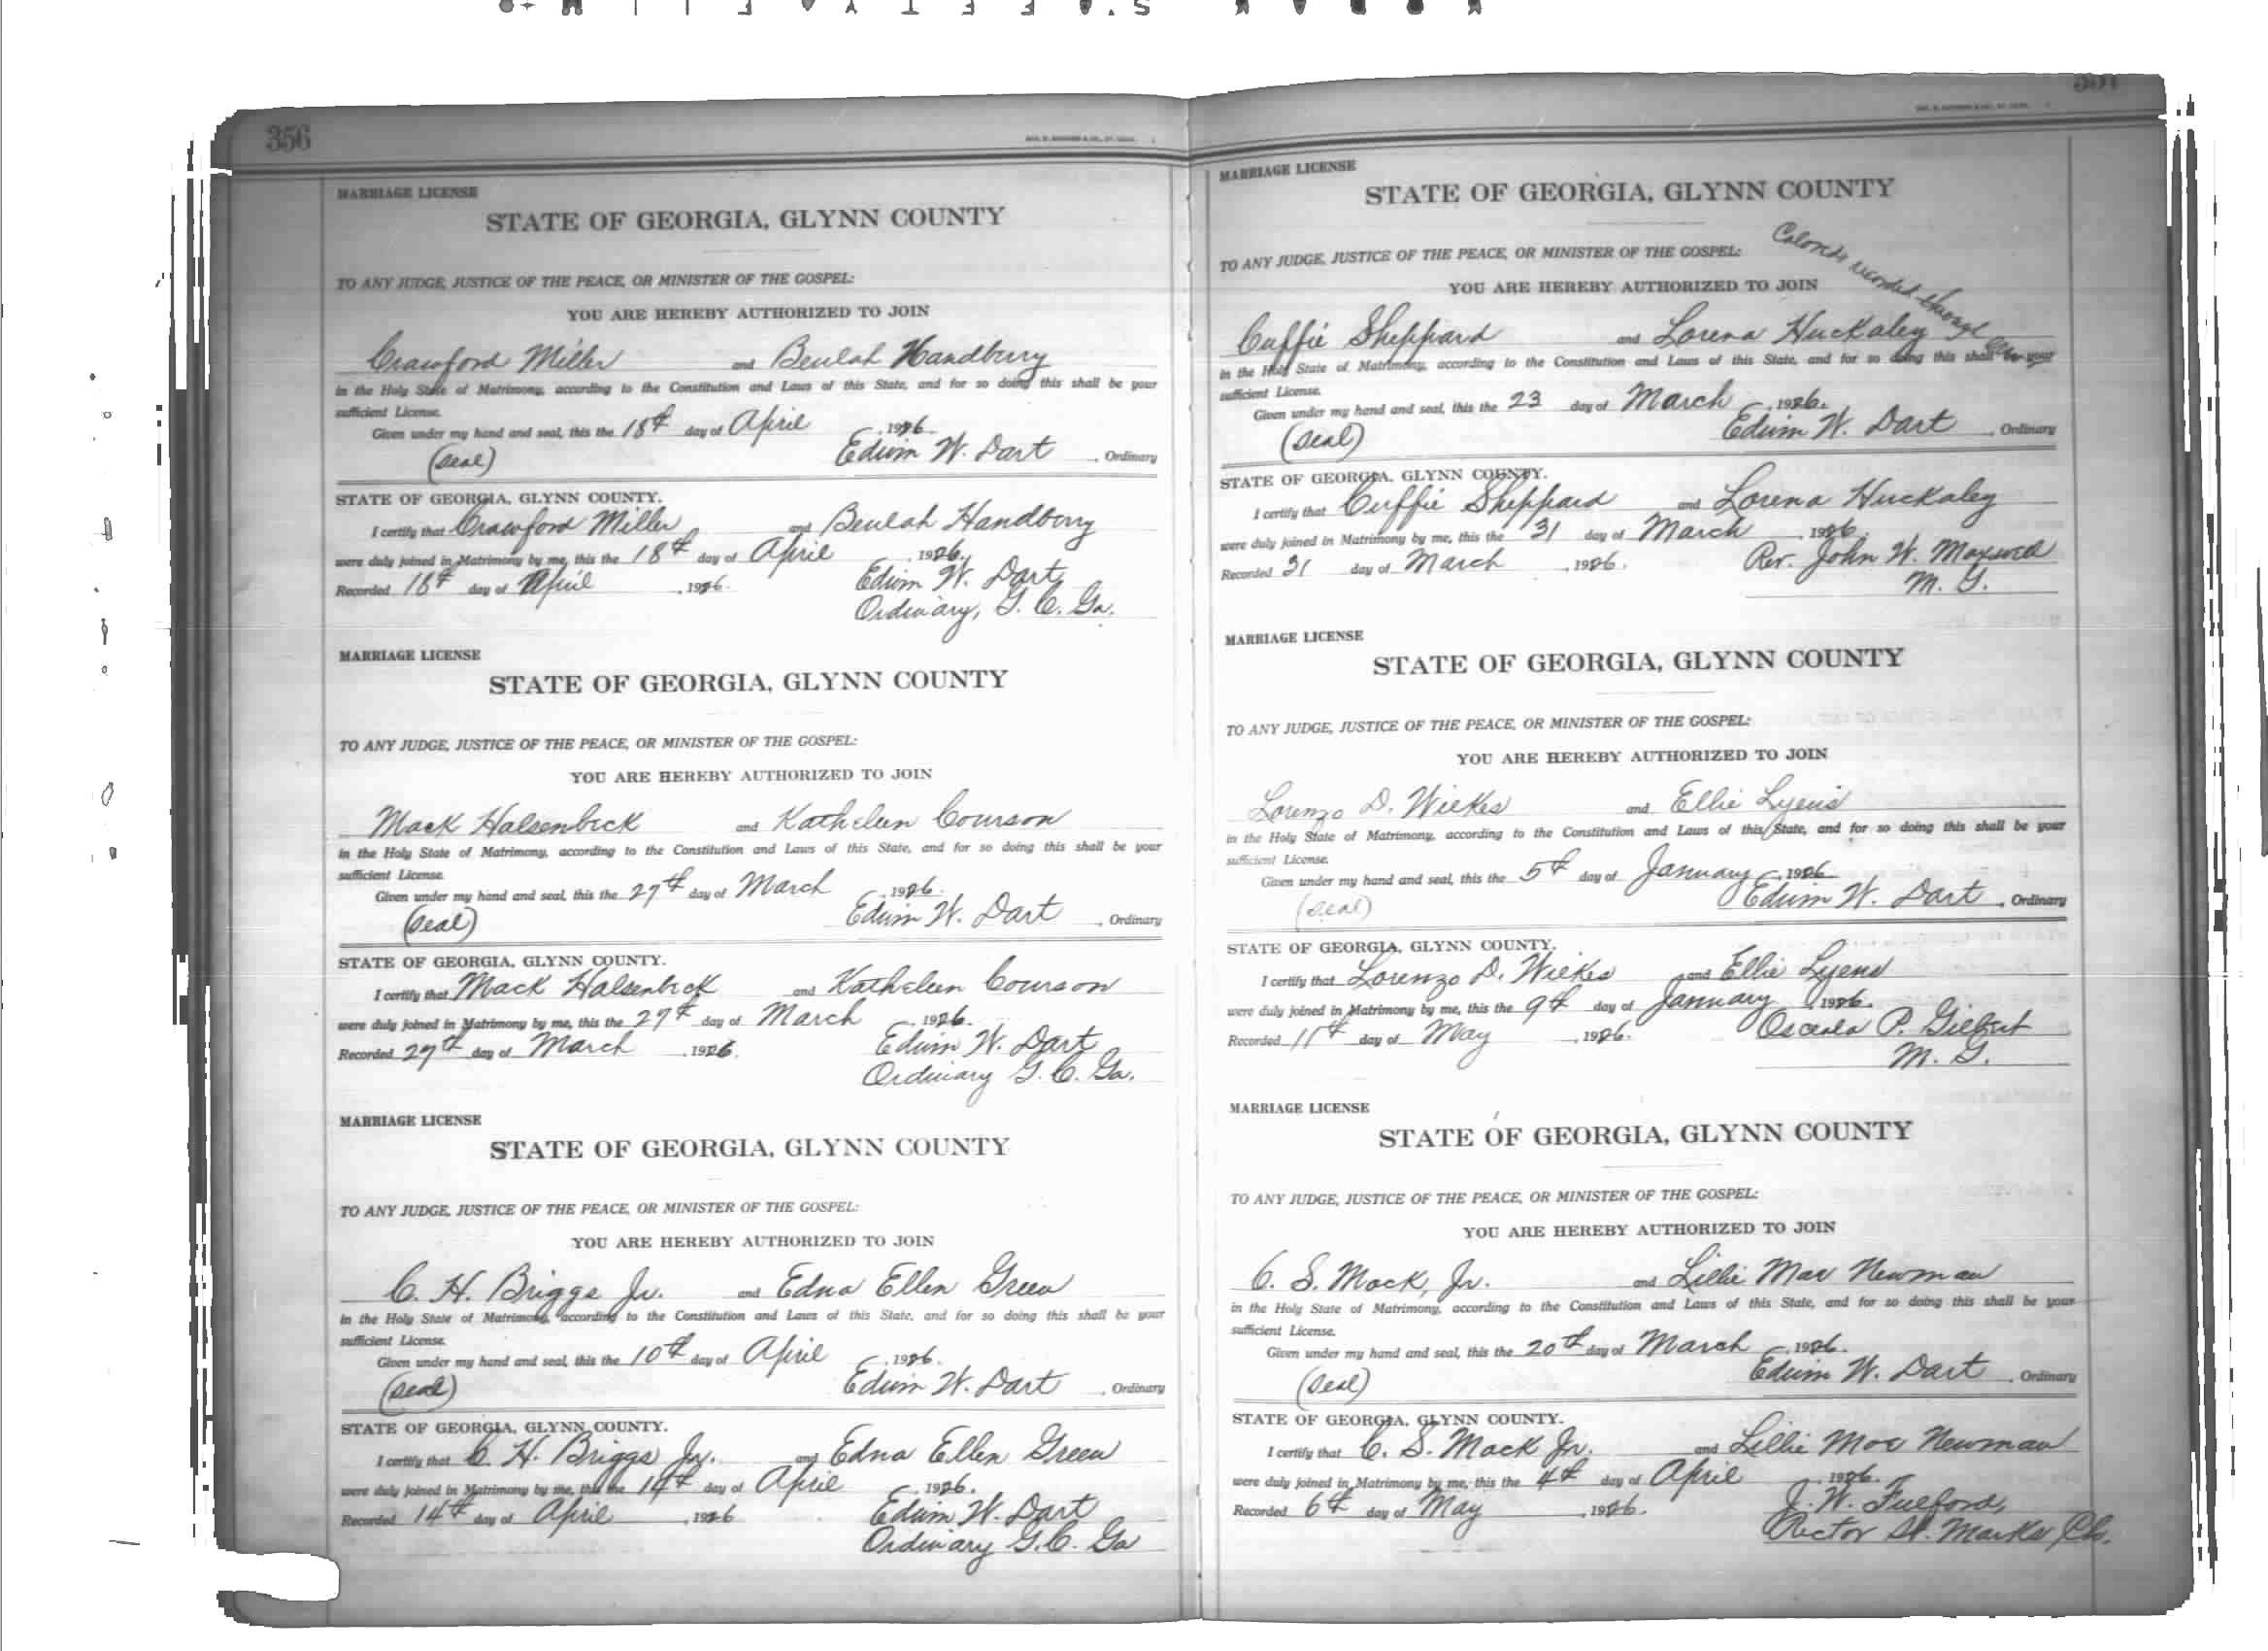 356
MARRIAGE LICENSE
STATE OF GEORGIA, GLYNN COUNTY
TO ANY JUDGE, JUSTICE OF THE PEACE, OR MINISTER OF THE GOSPEL:
YOU ARE HEREBY AUTHORIZED TO JOIN
Crawford Miller and Beulah Handbury
in the Holy State of Matrimony, according to the Constitution and Laws of this State, and for so doing this shall be your
sufficient License.
Given under my hand and seal, this the 18th day of April, 1926.
(Seal) Edwin W. Dart, Ordinary
STATE OF GEORGIA, GLYNN COUNTY.
I certify that Crawford Miller and Beulah Handbury
were duly joined in Matrimony by me, this the 18th day of April, 1926.
Recorded 18th day of April, 1926. Edwin W. Dart
Ordinary, G. C. Ga.
MARRIAGE LICENSE
STATE OF GEORGIA, GLYNN COUNTY
TO ANY JUDGE, JUSTICE OF THE PEACE, OR MINISTER OF THE GOSPEL:
YOU ARE HEREBY AUTHORIZED TO JOIN
Mack Halsenbeck and Kathleen Courson
in the Holy State of Matrimony, according to the Constitution and Laws of this State, and for so doing this shall be your
sufficient License.
Given under my hand and seal, this the 27th day of March, 1926.
(Seal) Edwin W. Dart, Ordinary
STATE OF GEORGIA, GLYNN COUNTY.
I certify that Mack Halsenbeck and Kathleen Courson
were duly joined in Matrimony by me, this the 27th day of March, 1926.
Recorded 27th day of March, 1926. Edwin W. Dart
Ordinary G. C. Ga.
MARRIAGE LICENSE
STATE OF GEORGIA, GLYNN COUNTY
TO ANY JUDGE, JUSTICE OF THE PEACE, OR MINISTER OF THE GOSPEL:
YOU ARE HEREBY AUTHORIZED TO JOIN
C. H. Briggs Jr. and Edna Ellen Green
in the Holy State of Matrimony, according to the Constitution and Laws of this State, and for so doing this shall be your
sufficient License.
Given under my hand and seal, this the 10th day of April, 1926.
(Seal) Edwin W. Dart, Ordinary
STATE OF GEORGIA, GLYNN COUNTY.
I certify that C. H. Briggs Jr. and Edna Ellen Green
were duly joined in Matrimony by me, this the 14th day of April, 1926.
Recorded 14th day of April, 1926 Edwin W. Dart
Ordinary G. C. Ga
MARRIAGE LICENSE
STATE OF GEORGIA, GLYNN COUNTY
Colored recorded through
TO ANY JUDGE, JUSTICE OF THE PEACE, OR MINISTER OF THE GOSPEL:
YOU ARE HEREBY AUTHORIZED TO JOIN
Cuffie Sheppard and Lorena Huckaley
in the Holy State of Matrimony, according to the Constitution and Laws of this State, and for so doing this shall be your
sufficient License.
Given under my hand and seal, this the 23 day of March, 1926.
(Seal) Edwin W. Dart, Ordinary
STATE OF GEORGIA, GLYNN COUNTY.
I certify that Cuffie Sheppard and Lorena Huckaley
were duly joined in Matrimony by me, this the 31 day of March, 1926.
Recorded 31 day of March, 1926. Rev. John W. Maxwell
M. G.
MARRIAGE LICENSE
STATE OF GEORGIA, GLYNN COUNTY
TO ANY JUDGE, JUSTICE OF THE PEACE, OR MINISTER OF THE GOSPEL:
YOU ARE HEREBY AUTHORIZED TO JOIN
Lorenzo D. Wilkes and Ellie Lyens
in the Holy State of Matrimony, according to the Constitution and Laws of this State, and for so doing this shall be your
sufficient License.
Given under my hand and seal, this the 5th day of January, 1926
(Seal) Edwin W. Dart, Ordinary
STATE OF GEORGIA, GLYNN COUNTY.
I certify that Lorenzo D. Wilkes and Ellie Lyens
were duly joined in Matrimony by me, this the 9th day of January, 1926.
Recorded 11th day of May, 1926. Osceola P. Gilbert
M. G.
MARRIAGE LICENSE
STATE OF GEORGIA, GLYNN COUNTY
TO ANY JUDGE, JUSTICE OF THE PEACE, OR MINISTER OF THE GOSPEL:
YOU ARE HEREBY AUTHORIZED TO JOIN
C. S. Mock, Jr. and Lillie Mae Newman
in the Holy State of Matrimony, according to the Constitution and Laws of this State, and for so doing this shall be your
sufficient License.
Given under my hand and seal, this the 20th day of March, 1926.
(Seal) Edwin W. Dart, Ordinary
STATE OF GEORGIA, GLYNN COUNTY.
I certify that C. S. Mock Jr. and Lillie Mae Newman
were duly joined in Matrimony by me, this the 4th day of April, 1926.
Recorded 6th day of May, 1926. J. W. Fulford,
Rector St. Marks Ch.